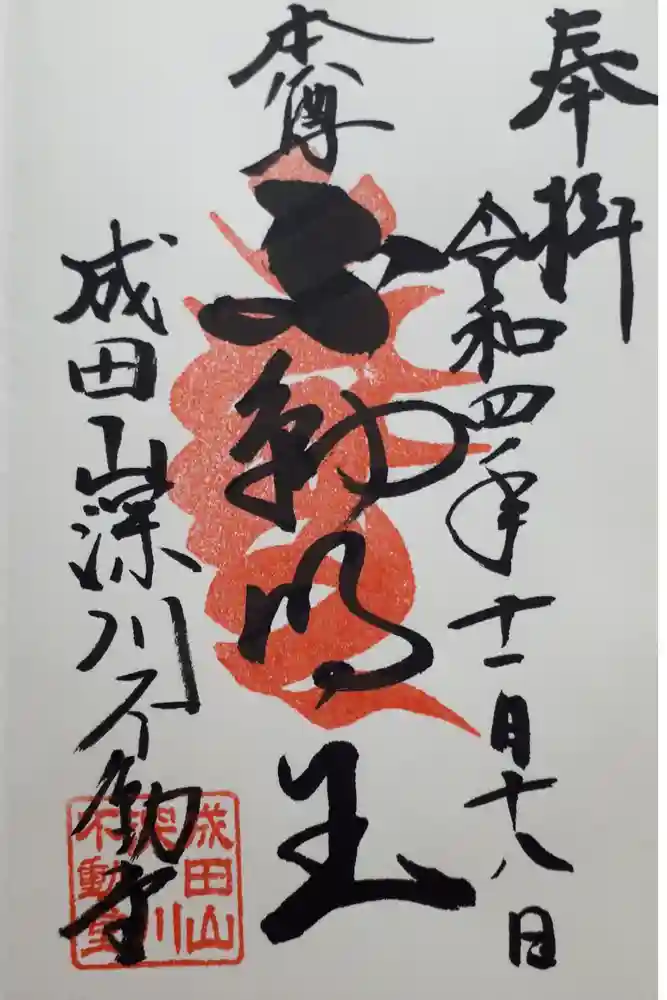 奉拝
令和四年十一月十八日
本尊
不動明王
成田山深川不動堂
成田山
深川
不動堂